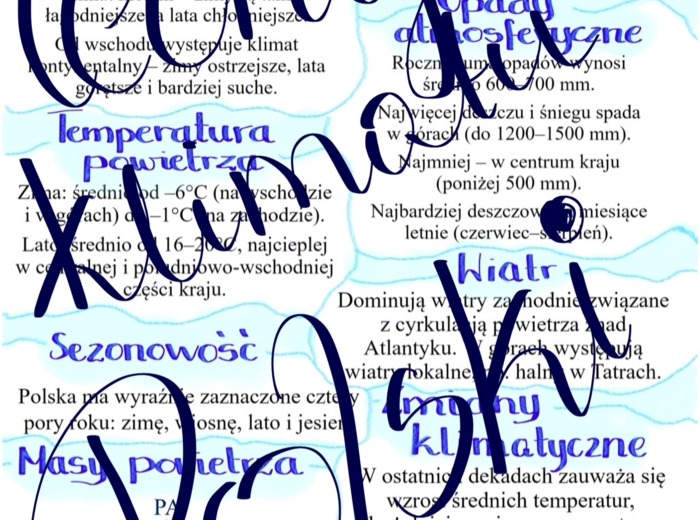 łagodniejsze a lata chłodniejsze.
Od wschodu występuje klimat
kontynentalny – zimy ostrzejsze, lata
gorętsze i bardziej suche.
Temperatura
powietrza
Zima: średnio od –6°C (na wschodzie
i w górach) do –1°C (na zachodzie).
Lato: średnio od 16–20°C, najcieplej
w centralnej i południowo-wschodniej
części kraju.
Sezonowość
Polska ma wyraźnie zaznaczone cztery
pory roku: zimę, wiosnę, lato i jesień
Masy powietrza
PA
Opady
atmosferyczne
Roczna suma opadów wynosi
średnio 600–700 mm.
Najwięcej deszczu i śniegu spada
w górach (do 1200–1500 mm).
Najmniej – w centrum kraju
(poniżej 500 mm).
Najbardziej deszczowe miesiące
letnie (czerwiec–sierpień).
Wiatr
Dominują wiatry zachodnie związane
z cyrkulacją powietrza znad
Atlantyku. W górach występują
wiatry lokalne, np. halny w Tatrach.
Zmiany
klimatyczne
W ostatnich dekadach zauważa się
wzrost średnich temperatur,
Klimatu
Polski